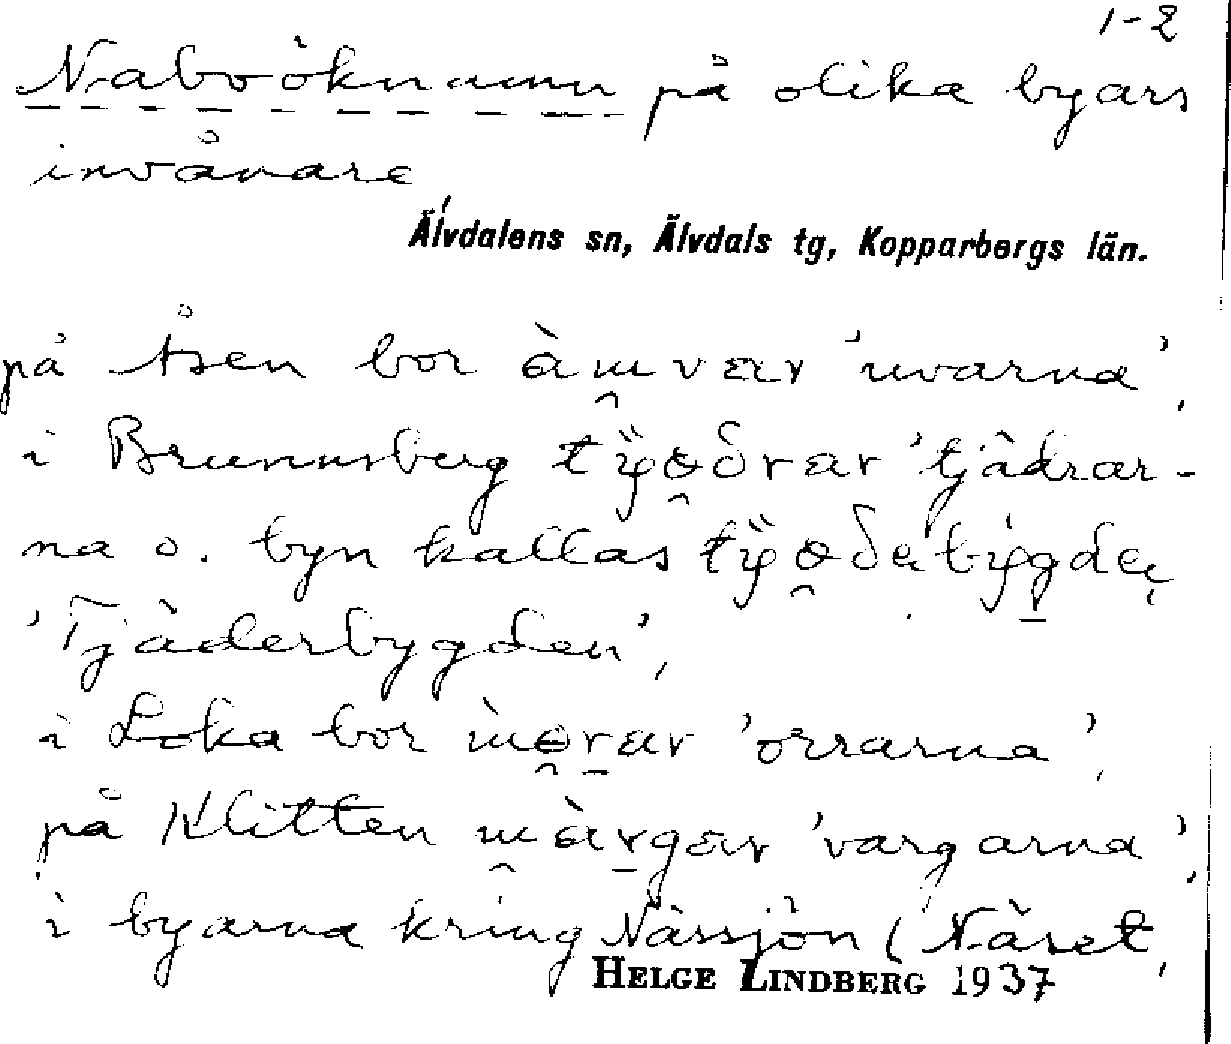 1-2
Naboöknamn på olika byars
invånare
Älvdalens sn, Älvdals tg, Kopparbergs län.
på Åsen bor 'uvarna',
i Brunnsberg 'tjädrar-
na o. byn kallas
'Tjäderbygden',
i Loka bor 'orrarna',
på Klitten 'vargarna',
i byarna kring Nässjön (Näset,
HELGE LINDBERG 1937